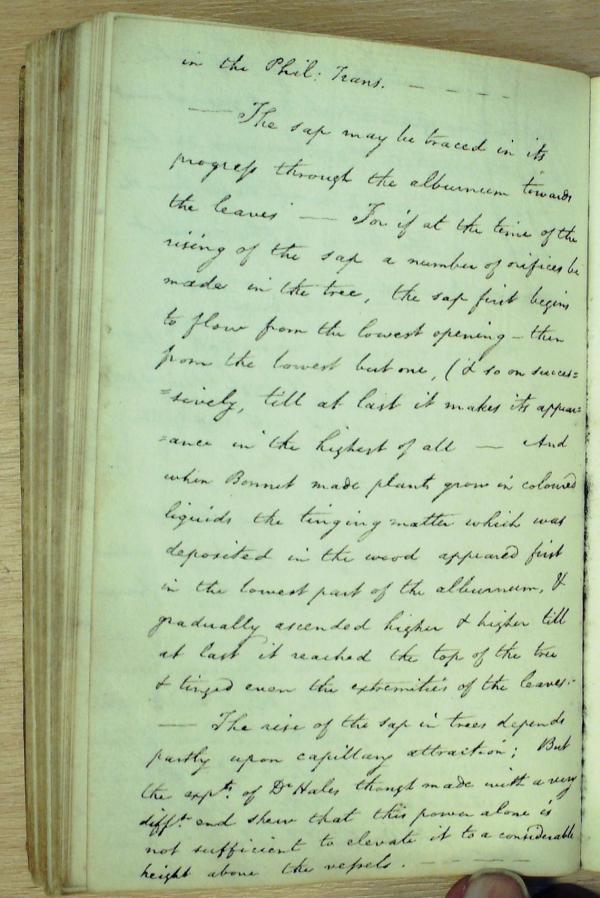 in the Phil: Trans. — — — —
— The sap may be traced in its
progress through the alburnum towards
the leaves — For if at the time of the
rising of the sap a number of orifices be
made in the tree, the sap first begins
to flow from the lowest opening – then
from the lowest but one, (& so on succes=
=sively, till at last it makes its appear=
=ance in the highest of all — And
when Bonnet made plants grow in coloured
liquids the tinging matter which was
deposited in the wood appeared first
in the lowest part of the alburnum, &
gradually ascended higher & higher till
at last it reached the top of the tree
& tinged even the extremities of the leaves.–
— The rise of the sap in trees depends
partly upon capillary attraction; But
the expts. of Dr Hales though made with a very
difft. end shew that this power alone is
not sufficient to elevate it to a considerable
height above the vessels. — — — —